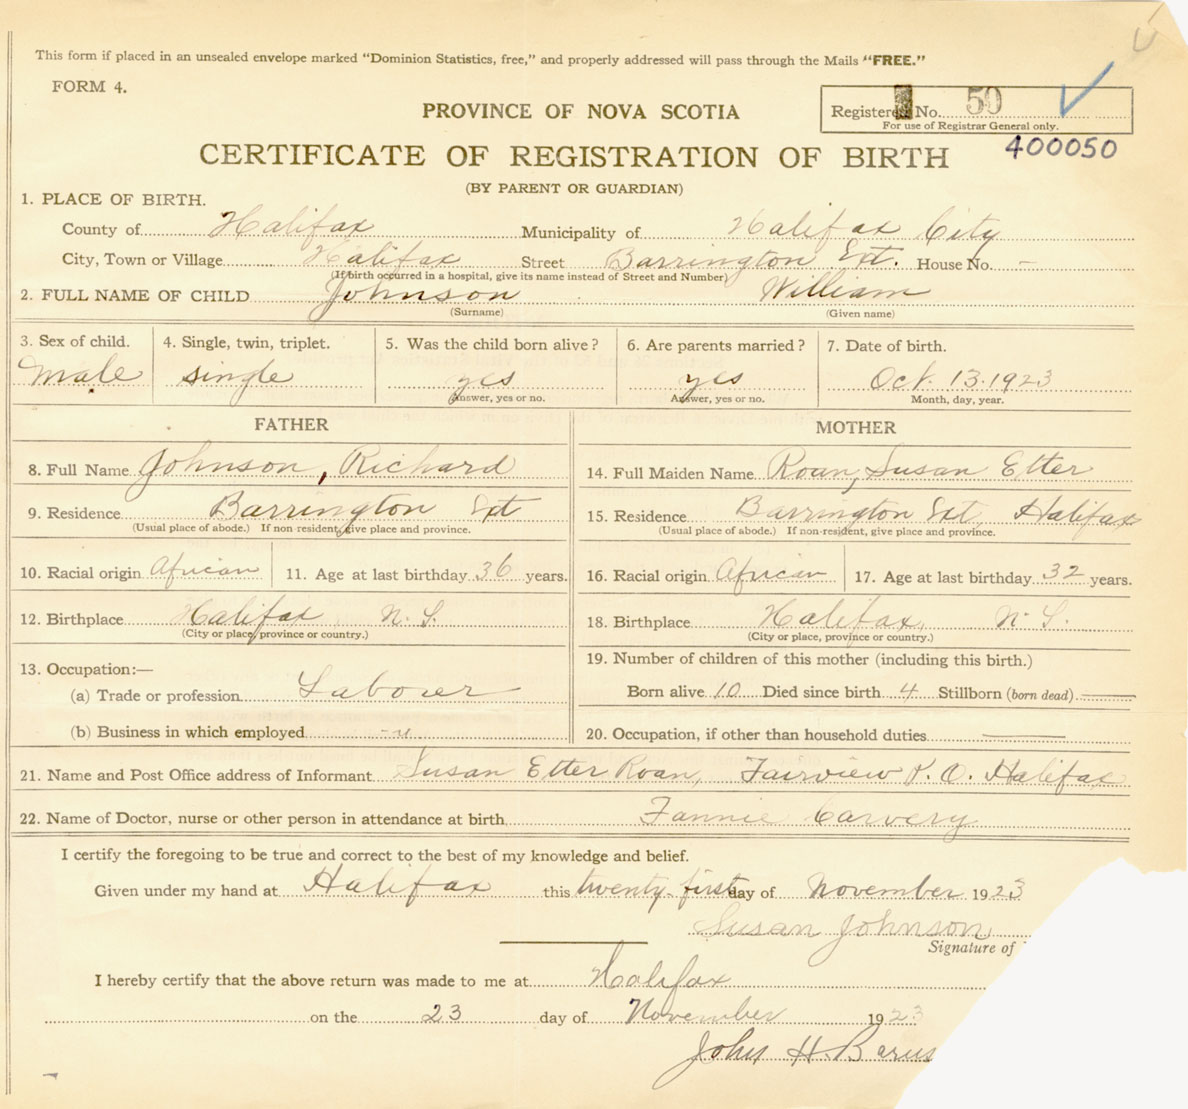 This form if placed in an unsealed envelope marked "Dominion Statistics, free," and properly addressed will pass through the Mails "FREE."
FORM 4.
PROVINCE OF NOVA SCOTIA
Registered No. 50
For use of Registrar General only.
400050
CERTIFICATE OF REGISTRATION OF BIRTH
(BY PARENT OR GUARDIAN)
1. PLACE OF BIRTH.
County of Halifax Municipality of Halifax City
City, Town or Village Halifax Street Barrington Ext. House No. -
(If birth occurred in a hospital, give its name instead of Street and Number)
2. FULL NAME OF CHILD Johnson William
(Surname) (Given name)
3. Sex of child. 4. Single, twin, triplet. 5. Was the child born alive? 6. Are parents married? 7. Date of birth.
Male single yes yes Oct. 13. 1923
Answer, yes or no. Answer, yes or no. Month, day, year.
FATHER MOTHER
8. Full Name Johnson, Richard 14. Full Maiden Name Roan, Susan Etter
9. Residence Barrington Ext 15. Residence Barrington Ext, Halifax
(Usual place of abode.) If non resident, give place and province. (Usual place of abode.) If non-resident, give place and province.
10. Racial origin African 11. Age at last birthday 36 years. 16. Racial origin African 17. Age at last birthday 32 years.
12. Birthplace Halifax N. S. 18. Birthplace Halifax, N. S.
(City or place, province or country.) (City or place, province or country.)
13. Occupation:— 19. Number of children of this mother (including this birth.)
(a) Trade or profession Labourer Born alive 10 Died since birth 4 Stillborn (born dead)
(b) Business in which employed -"- 20. Occupation, if other than household duties
21. Name and Post Office address of Informant Susan Etter Roan, Fairview P. O. Halifax
22. Name of Doctor, nurse or other person in attendance at birth Fannie Carvery
I certify the foregoing to be true and correct to the best of my knowledge and belief.
Given under my hand at Halifax this twenty-first day of November 1923
Susan Johnson
Signature of
I hereby certify that the above return was made to me at Halifax
on the 23 day of November 1923
John H. Barns